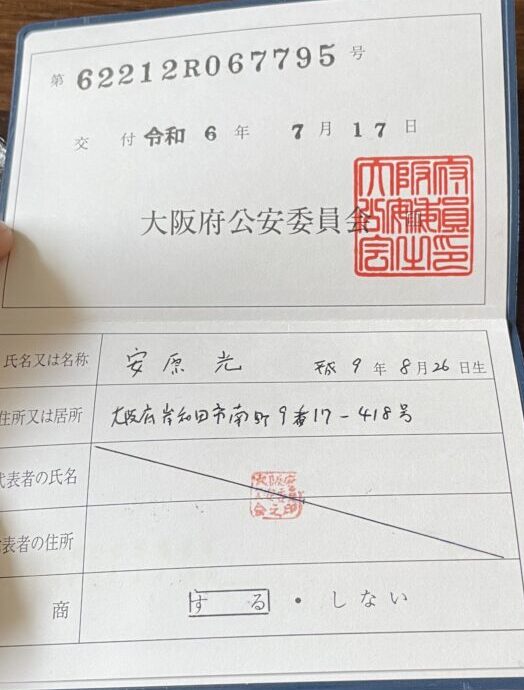 第 62212R067795 号
交 付 令和 6 年 7 月 17 日
大阪府公安委員会
氏名又は名称 安原 光 平成 9 年 8月26 日生
住所又は居所 大阪府岸和田市南町9番17-418号
代表者の氏名
表者の住所
商 する ・ しない